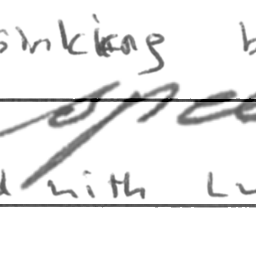 sinking b
spee
d with Lu